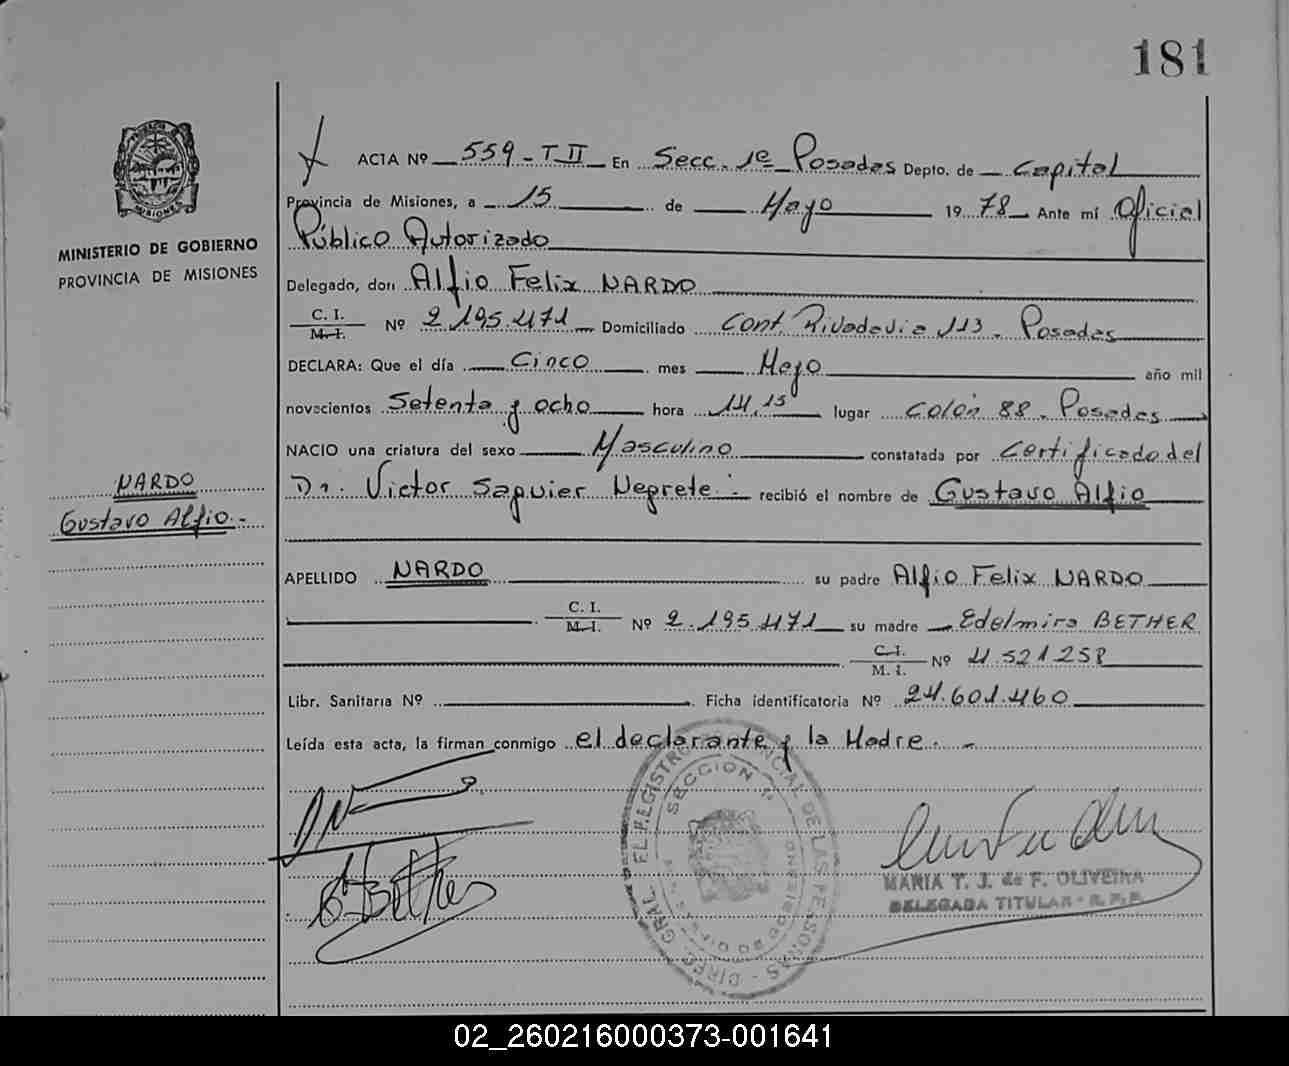 181
ACTA Nº 559-T II En Secc. 1º Posadas Depto. de Capital
Provincia de Misiones, a 15 de Mayo 1978 Ante mí Oficial
Público Autorizado
Delegado, don Alfio Felix NARDO
C. I.
M. I. Nº 2.195.471 Domiciliado Cont. Rivadavia 113. Posadas
DECLARA: Que el día Cinco mes Mayo año mil
novecientos Setenta y ocho hora 14,15 lugar Colón 88. Posadas
NACIO una criatura del sexo Masculino constatada por Certificado del
Dr. Victor Saguier Negrete.- recibió el nombre de Gustavo Alfio
APELLIDO NARDO su padre Alfio Felix NARDO
C. I.
M. I. Nº 2.195.471 su madre Edelmira BETHER
C. I.
M. I. Nº 4.521.258
Libr. Sanitaria Nº Ficha identificatoria Nº 24.601.460
Leída esta acta, la firman conmigo el declarante y la Madre. -
MINISTERIO DE GOBIERNO
PROVINCIA DE MISIONES
NARDO
Gustavo Alfio.-
MISIONES
SECCION 1ª
DIREC. GRAL. EL REGISTRO PROVINCIAL DE LAS PERSONAS
MARIA T. J. de F. OLIVEIRA
DELEGADA TITULAR - R. P. P.
02_260216000373-001641